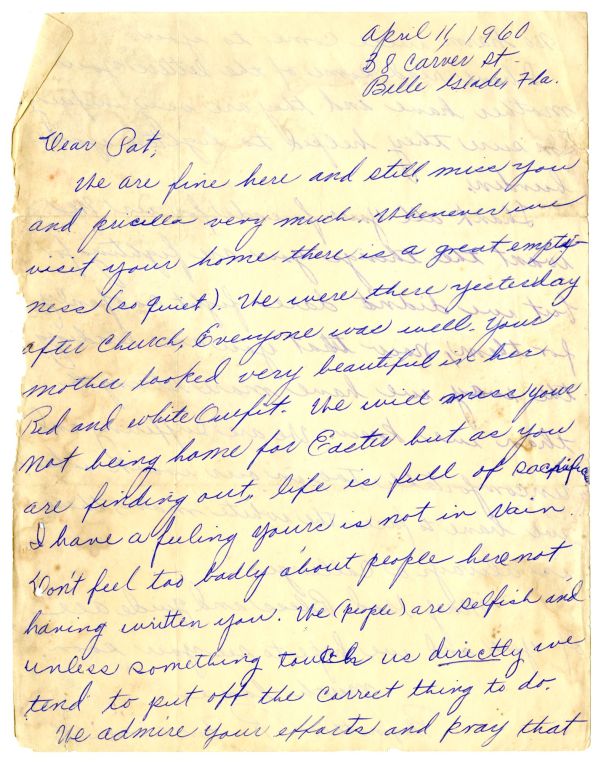 April 11, 1960
38 Carver St.
Belle Glade, Fla.
Dear Pat,
We are fine here and still miss you
and pricilla very much. Whenever we
visit your home there is a great empti-
ness (so quiet). We were there yesterday
after church, Everyone was well. Your
mother looked very beautiful in her
Red and white Outfit. We will miss your
not being home for Easter but as you
are finding out, life is full of sacrifices
I have a feeling yours is not in vain.
Don't feel too badly about people here not
having written you. We (people) are selfish and
unless something touch us directly we
tend to put off the correct thing to do.
We admire your efforts and pray that